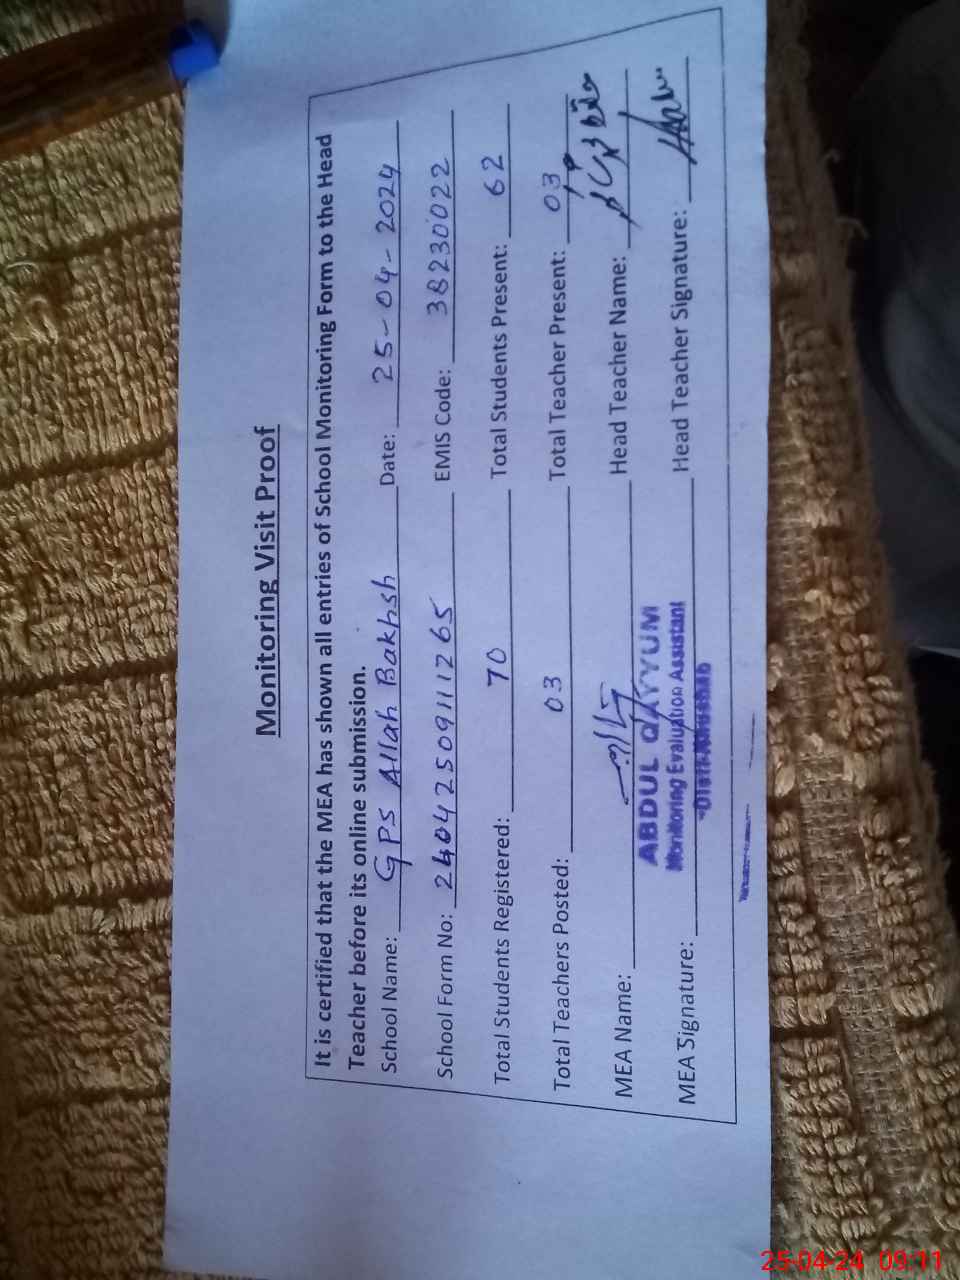 Monitoring Visit Proof
It is certified that the MEA has shown all entries of School Monitoring Form to the Head
Teacher before its online submission.
School Name: GPS Allah Bakhsh Date: 25-04-2024
School Form No: 240425091111265 EMIS Code: 38230022
Total Students Registered: 70 Total Students Present: 62
Total Teachers Posted: 03 Total Teacher Present: 03
MEA Name: Head Teacher Name:
ABDUL QAYYUM
MEA Signature: Head Teacher Signature:
Monitoring Evaluation Assistant
25-04-24 09:11